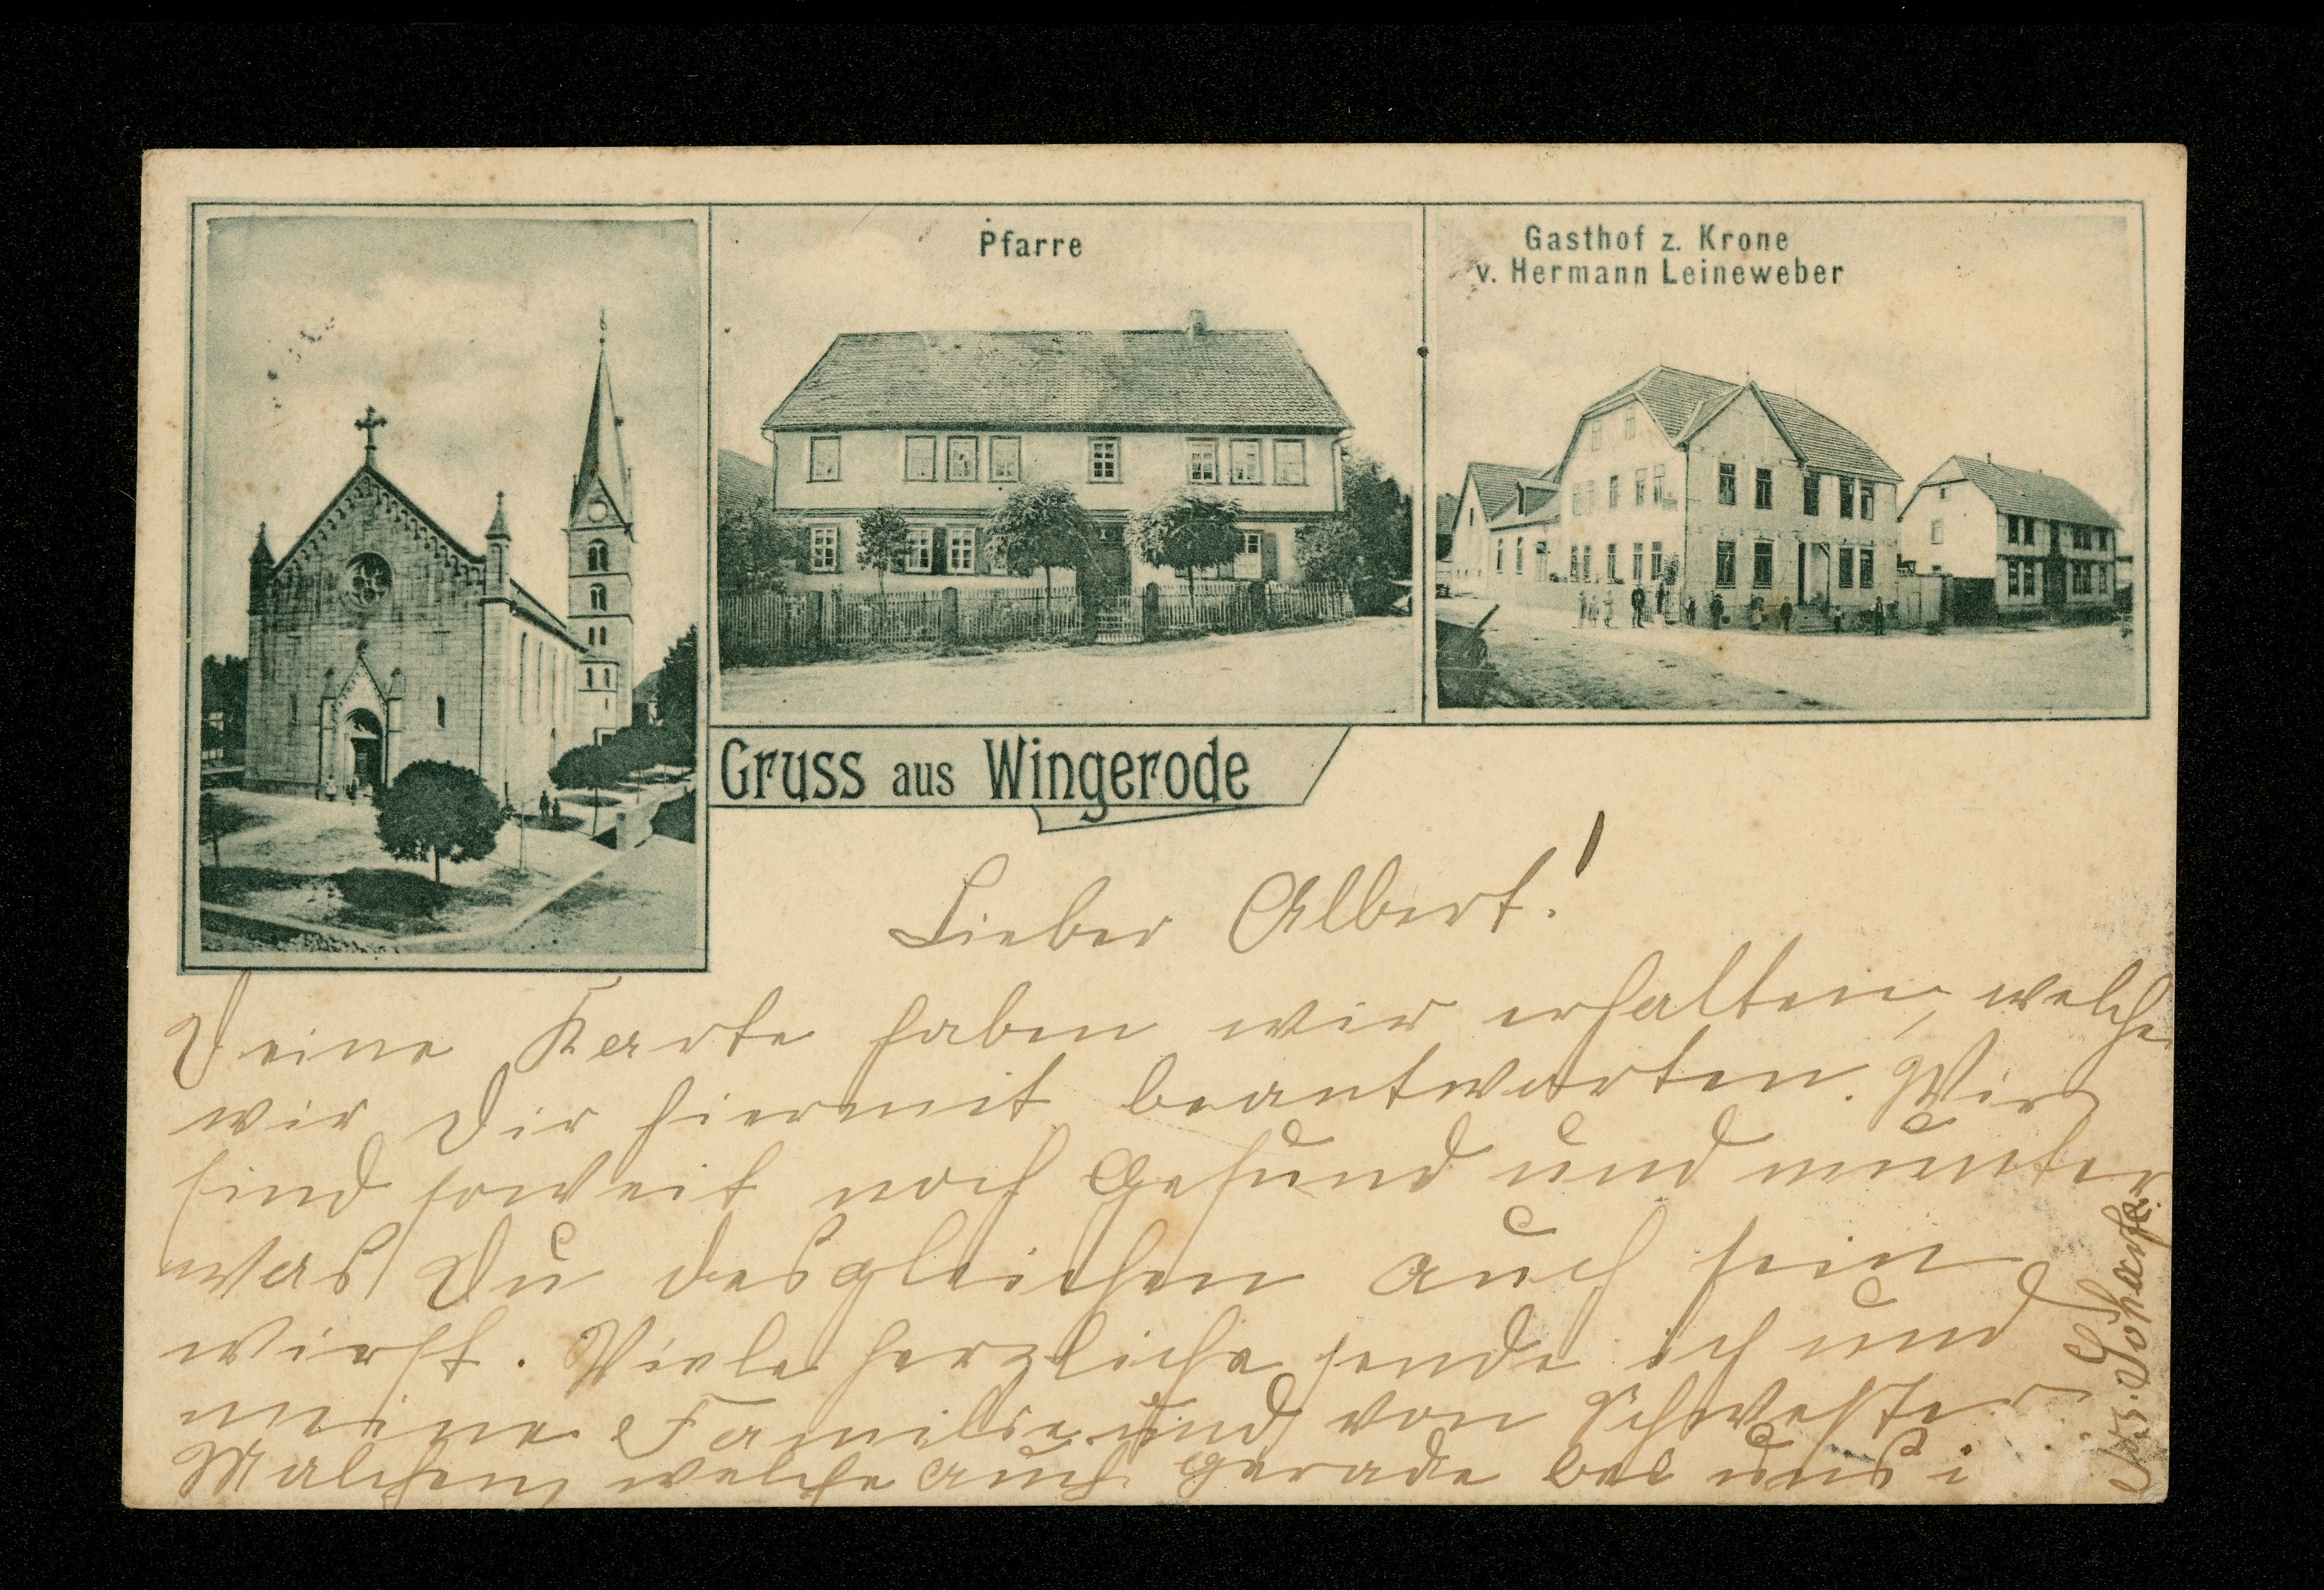 Pfarre
Gasthof z. Krone
v. Hermann Leineweber
Gruss aus Wingerode
Lieber Albert!
Deine Karte haben wir erhalten, welche
wir Dir hiermit beantworten. Wir
sind soweit noch Gesund und munter
was Du desgleichen auch sein
wirst. Viele herzliche sende ich und
meine Familie und von Schwester
Malchen, welche auch gerade bei uns i